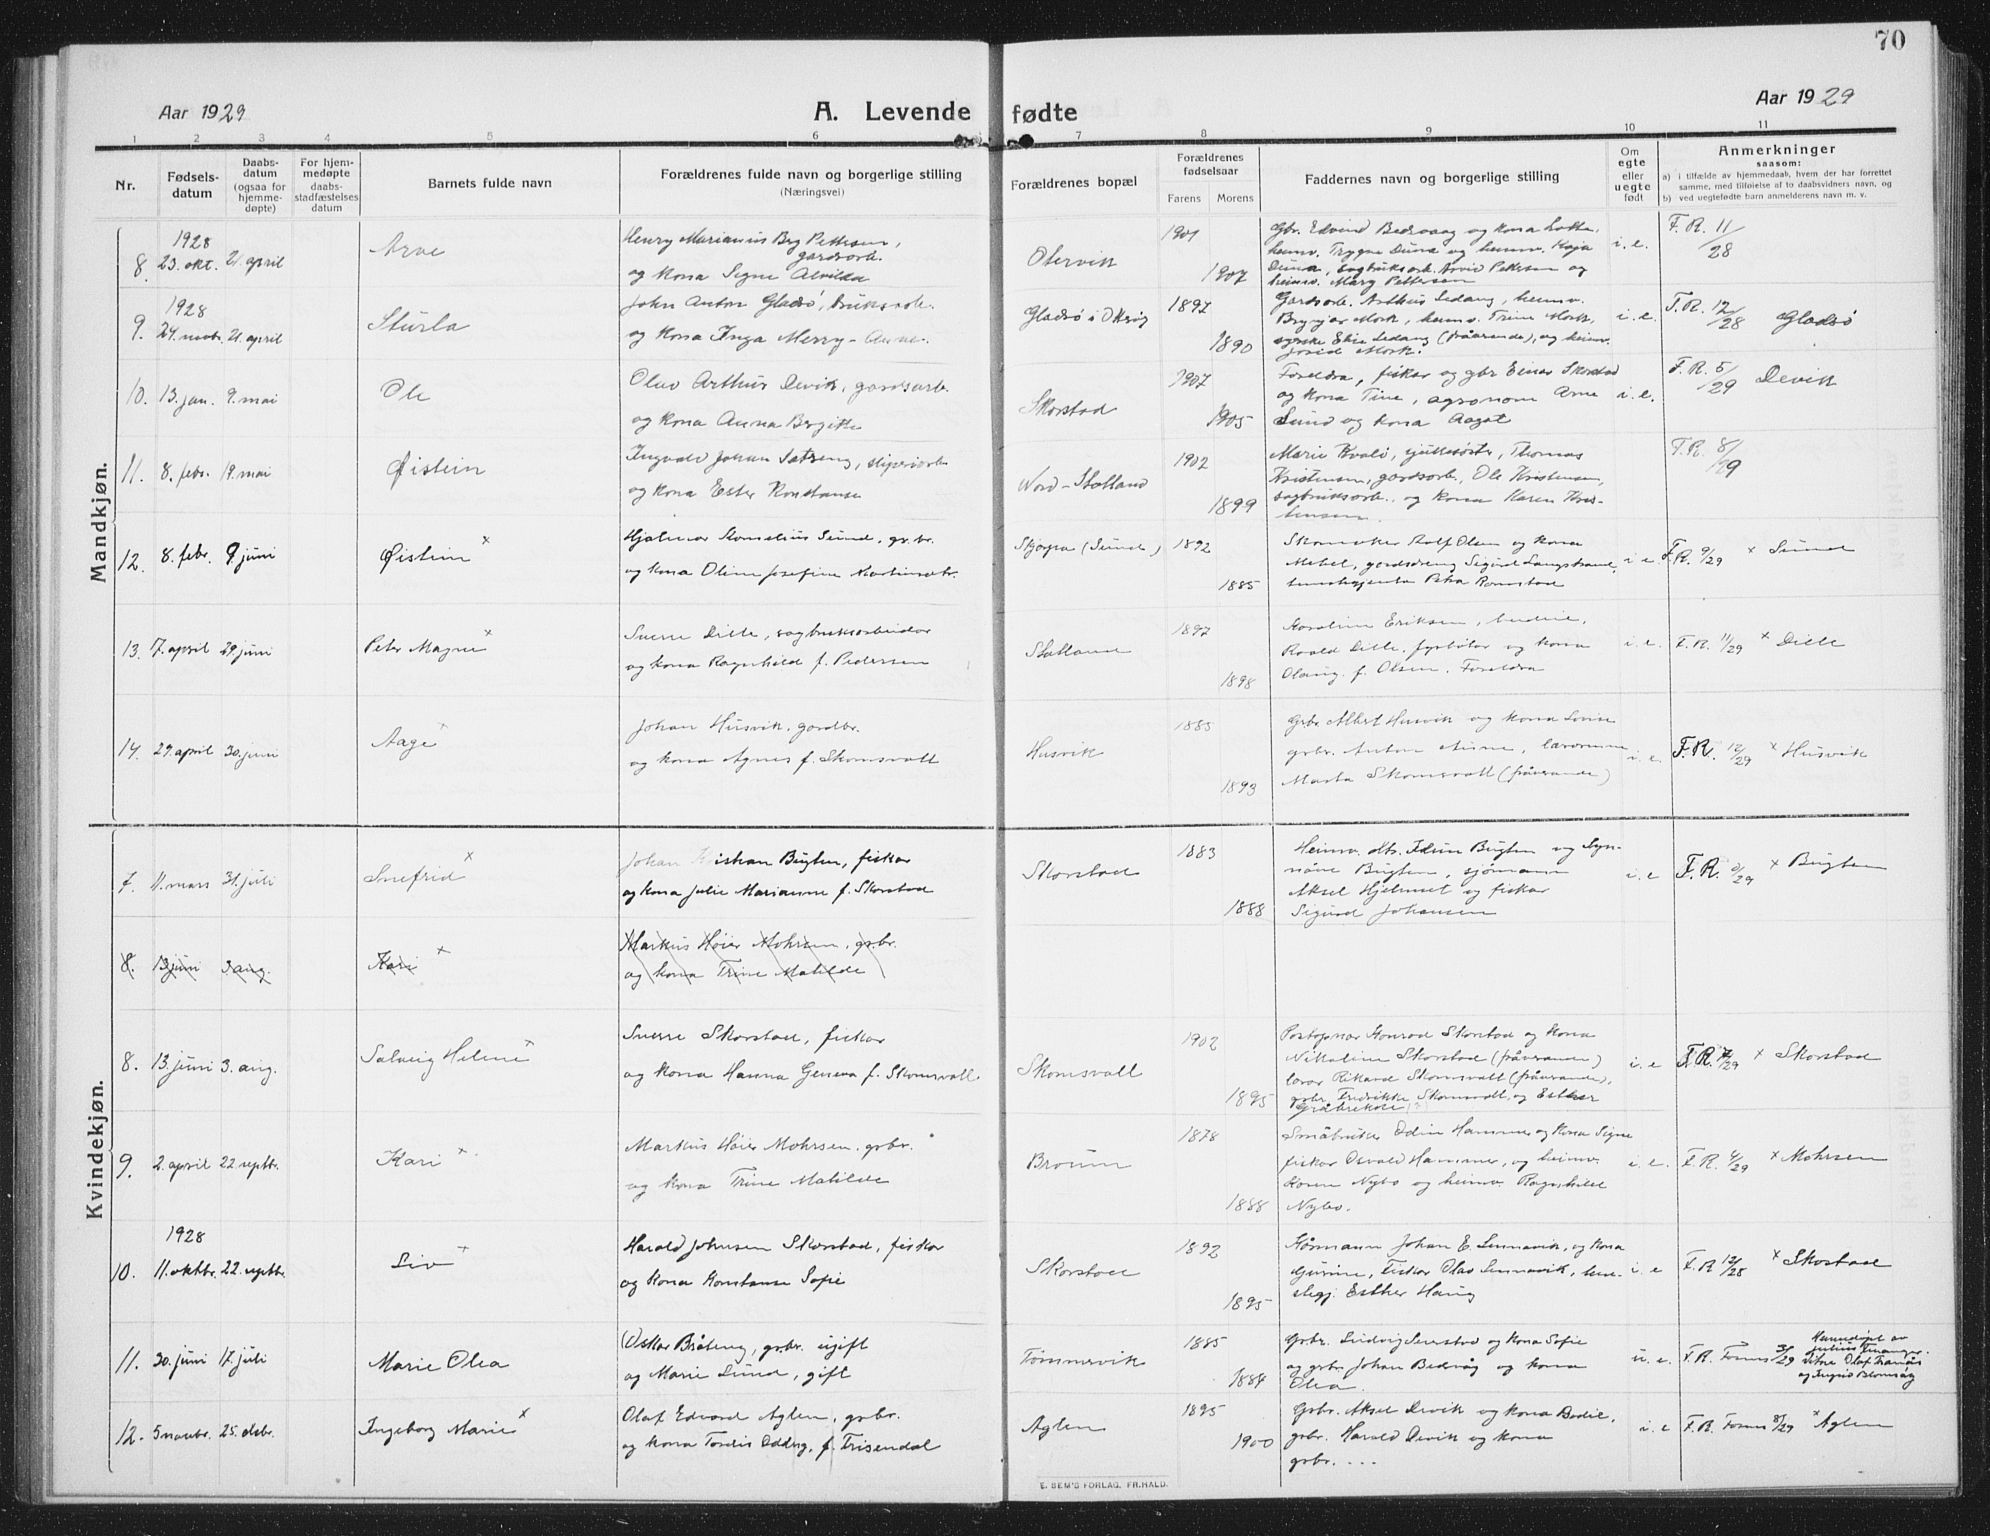 70
Aar 1929
A. Levende fødte
Aar 1929
1 2 3 4 5 6 7 8 9 10 11
Nr.
Fødsels-
datum
Daabs-
datum
(ogsaa for
hjemme-
døpte)
For hjem-
medøpte
daabs-
stadfæstelses
datum
Barnets fulde navn
Forældrenes fulde navn og borgerlige stilling
(Næringsvei)
Forældrenes bopæl
Forældrenes
fødselsaar
Farens Morens
Faddernes navn og borgerlige stilling
Om
egte
eller
uegte
født
Anmerkninger
saasom:
a) i tilfælde av hjemmedaab, hvem der har forrettet
samme, med tilføielse af to daabsvidners navn, og
b) ved uegtefødte barn anmelderens navn m. v.
Mandkjøn.
1928
8. 23. okt. 21. april
Arve
Henry Marianius Pettersen,
gardsarb.
og kona Signe Alvilda
Otervik
1901
1907
Gbr. Edvind Bedrvaag og kona Lotte,
heimv. Trygve Duna og heimv. Kaja
Duna, sagbruksarb. Arvid Pettersen og
heimv. Mary Pettersen
i. e.
F. R. 11/28
1928
9. 24. novbr. 21. april
Sturla
John Anton Gladsö, bruksarb.
og kona Inga Merry
Gladsö i
1897
1890
Gardsarb. Arthur Sedang, heimv.
Mork, heimv. Trine Mork,
(fråverande), og heimv.
Mork.
i. e.
F. R. 12/28 Gladsö
10. 13. jan. 9. mai
Ole
Olav Arthur Devik, gardsarb.
og kona Anna Bergitte
Skorstad
1907
1905
Foreldra, fiskar og gbr Einar Skorstad
og kona Tine, agronom Arne
Sund og kona Aagot
i. e.
F. R. 5/29 Devik
11. 8. febr. 19. mai
Øistein
Ingvald Johan Satreng, sliperiarb.
og kona Ester Konstanse
Nord-Statland
1902
1899
Marie Kvalö, sjuksöster, Thomas
Kristensen, gardsarb., Ole Kristensen,
sagbruksarb. og kona Karen Kris-
tensen.
F. R. 8/29
12. 8. febr. 9. juni
Øistein x
Hjalmar Kornelius Sund, gr. br.
og kona Oline Josefine
(Sund)
1892
1885
Skomaker Rolf Olsen og kona
gardsdreng Sigurd Langstrand,
Petra Romstad
i. e.
F. R. 9/29 x Sund
13. 7. april 29. juni
Peter Magne x
Sverre Dille, sagbruksarbeidar
og kona Ragnhild f. Pedersen
Statland
1897
1898
Karoline Eriksen, budeie,
Roald Dille, fyrböter og kona
Olaug. f. Olsen. Foreldra
i. e.
F. R. 11/29 x Dille
14. 29. april 30. juni
Aage x
Johan Husvik, gardbr.
og kona Agnes f. Skomsvoll
Husvik
1885
1893
Grbr. Albert Husvik og kona Lovise
grbr. Anton Aune, lærarinne
Marta Skomsvoll (fråverande)
i. e.
F. R. 12/29 x Husvik
Kvindekjøn.
7. 11. mars 31. juli
Snefrid x
Johan Kristian Bugten, fiskar
og kona Julie Marianne f. Skorstad
Skorstad
1883
1888
Heimv. dtr. Idun Bugten og Syn-
növe Bugten, sjömann
Aksel Hjelmset og fiskar
Sigurd Johansen
i. e
F. R. 9/29 x Bugten
8. 13 juni 3 aug.
Kari x
Markus Høier Mohrsen, grbr.
og kona Trine Matilde
8. 13. juni 3. aug.
Solveig Helene x
Sverre Skorstad, fiskar
og kona Hanna Geneva f. Skomsvoll
Skomsvoll
1902
1895
Postopnar Konrad Skorstad og kona
Nikoline Skorstad (fråverande)
lærar Rikard Skomsvoll (fråverande),
grbr. Fredrikke Skomsvoll, og Esther
i. e
F. R. 7/29 x Skorstad
9. 2. april 22. septbr.
Kari x
Markus Høier Mohrsen, grbr.
og kona Trine Matilde
Braum
1878
1888
Småbruker Odin Hammer og kona Signe
fiskar Osvald Hammer, og heimv.
Karen Nybo og heimv. Ragnhild
Nybo.
i. e.
F. R. 4/29 x Mohrsen
1928
10. 11. oktbr. 22. septbr.
Liv x
Harald Johnsen Skorstad, fiskar
og kona Konstanse Sofie
Skorstad
1892
1895
Formann Johan E. Sunnavik, og kona
Gurine, Fiskar Olav Sunnavik,
Esther Haug
i. e
F. R. 12/28 x Skorstad
11. 30. juni 17. juli
Marie Olea
Oskar Bråteng, grbr. ugift
og Marie Sund, gift
Tømmervik
1885
1884
Grbr. Ludvig Seierstad og kona Sofie
og grbr. Johan Bedvåg og kona
Olea.
u. e.
F. R. Fornes 3/29
Heimedöpt av
Julius
Vitne Olaf Tranås
og Ingrid Blomsög
12. 5 novbr. 25. desbr.
Ingeborg Marie x
Olaf Edvard Aglen, grbr.
og kona Tordis Oddny, f. Frisendal
Aglen
1895
1900
Grbr. Aksel Devik og kona Bodil,
grbr. Harald Devik og kona
grbr. ...
i. e
F. R. Fornes 8/29 x Aglen
E. SEM'S FORLAG, FR.HALD.